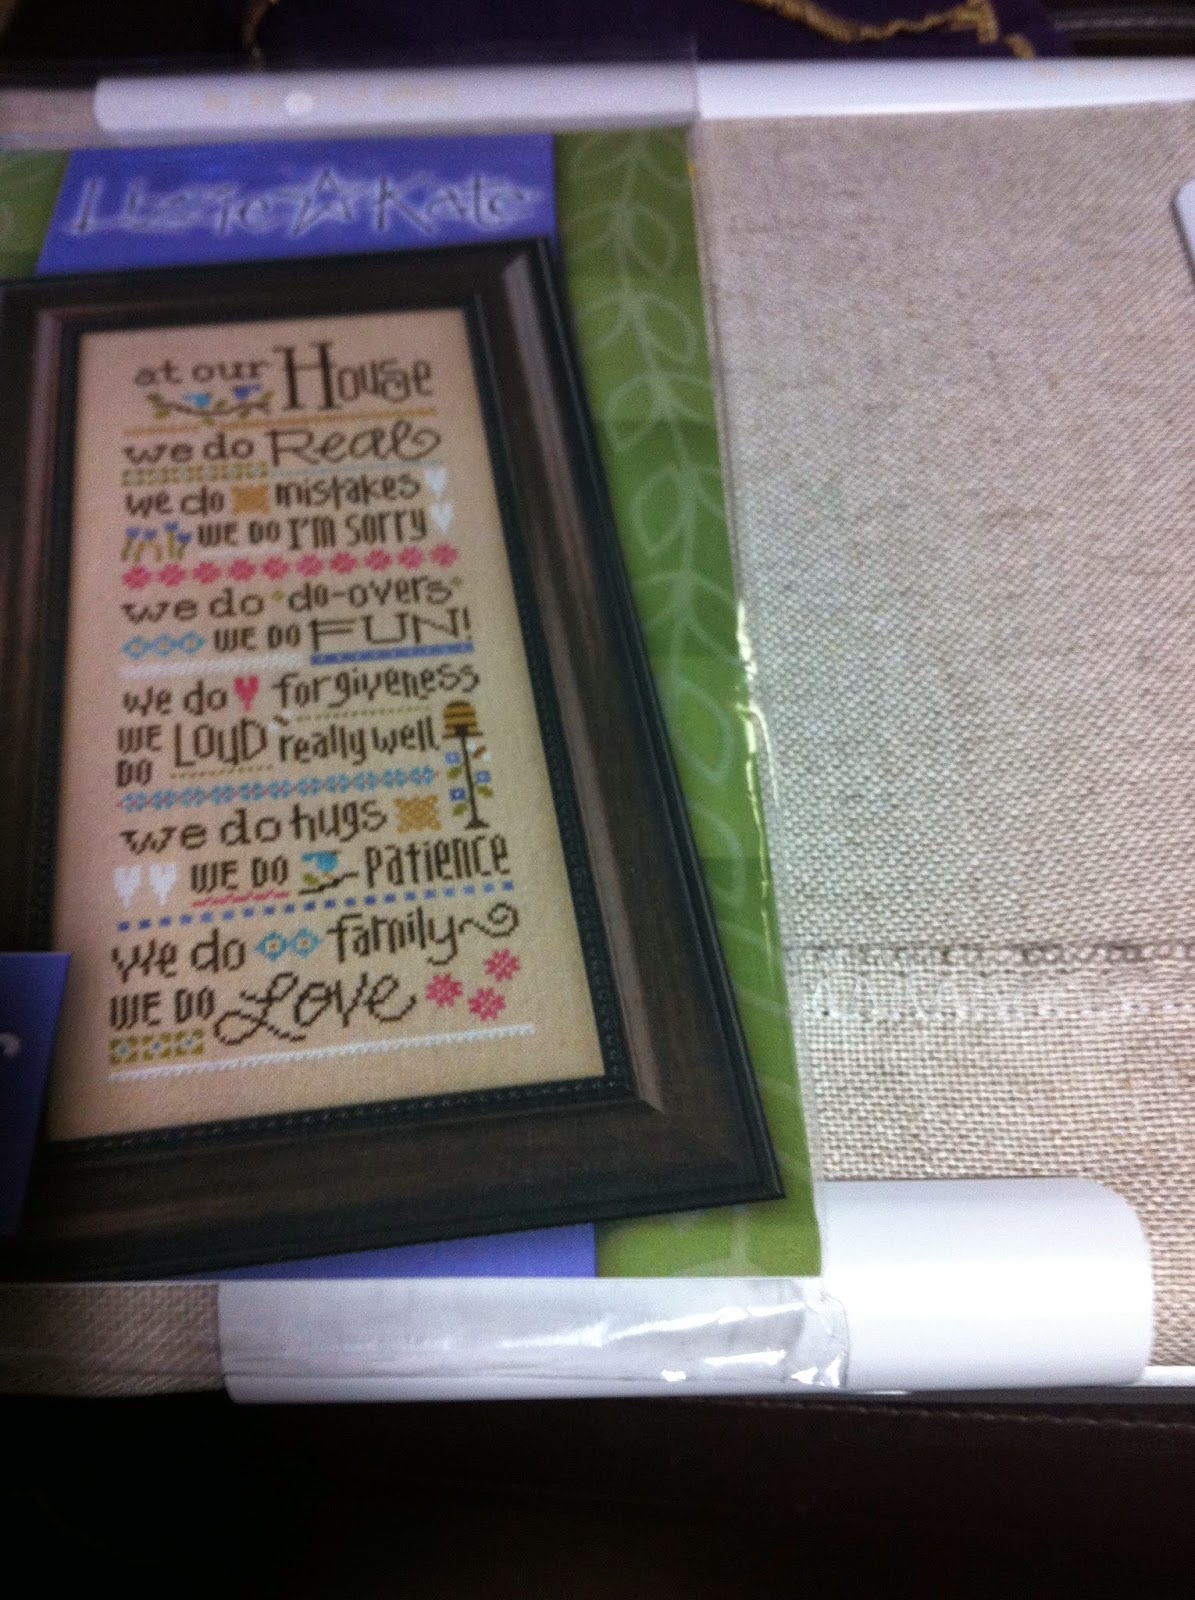 Lizzie*Kate
at our House
we do Real
we do mistakes
WE DO I'M SORRY
we do do-overs
WE DO FUN!
we do forgiveness
WE DO LOUD really well
we do hugs
WE DO patience
we do family
WE DO Love